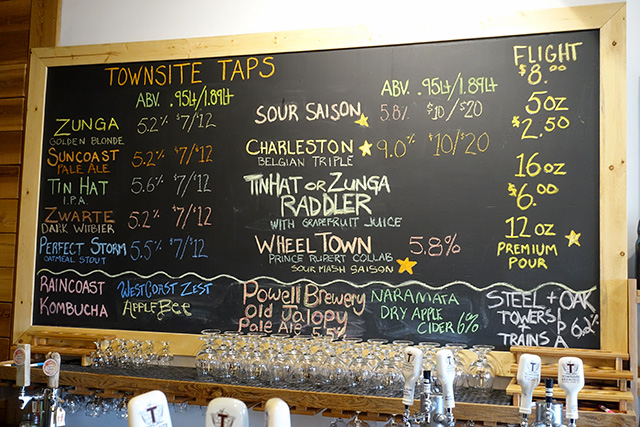 TOWNSITE TAPS
ABV. .95L/1.89L
ZUNGA 5.2% $7/$12
GOLDEN BLONDE
SUNCOAST 5.2% $7/$12
PALE ALE
TIN HAT 5.6% $7/$12
I.P.A.
ZWARTE 5.2% $7/$12
DARK WITBIER
PERFECT STORM 5.5% $7/$12
OATMEAL STOUT
ABV. .95L/1.89L
SOUR SAISON 5.8% $10/$20
CHARLESTON 9.0% $10/$20
BELGIAN TRIPLE
TINHAT OR ZUNGA
RADDLER
WITH GRAPEFRUIT JUICE
WHEELTOWN 5.8%
PRINCE RUPERT COLLAB
SOUR MASH SAISON
FLIGHT
$8.00
5oz
$2.50
16oz
$6.00
12oz
PREMIUM
POUR
RAINCOAST
KOMBUCHA
WESTCOAST ZEST
APPLE BEE
Powell Brewery
Old Jalopy
Pale Ale 5.5%
NARAMATA
DRY APPLE
CIDER 6%
STEEL + OAK
TOWERS
+
TRAINS
6.2%